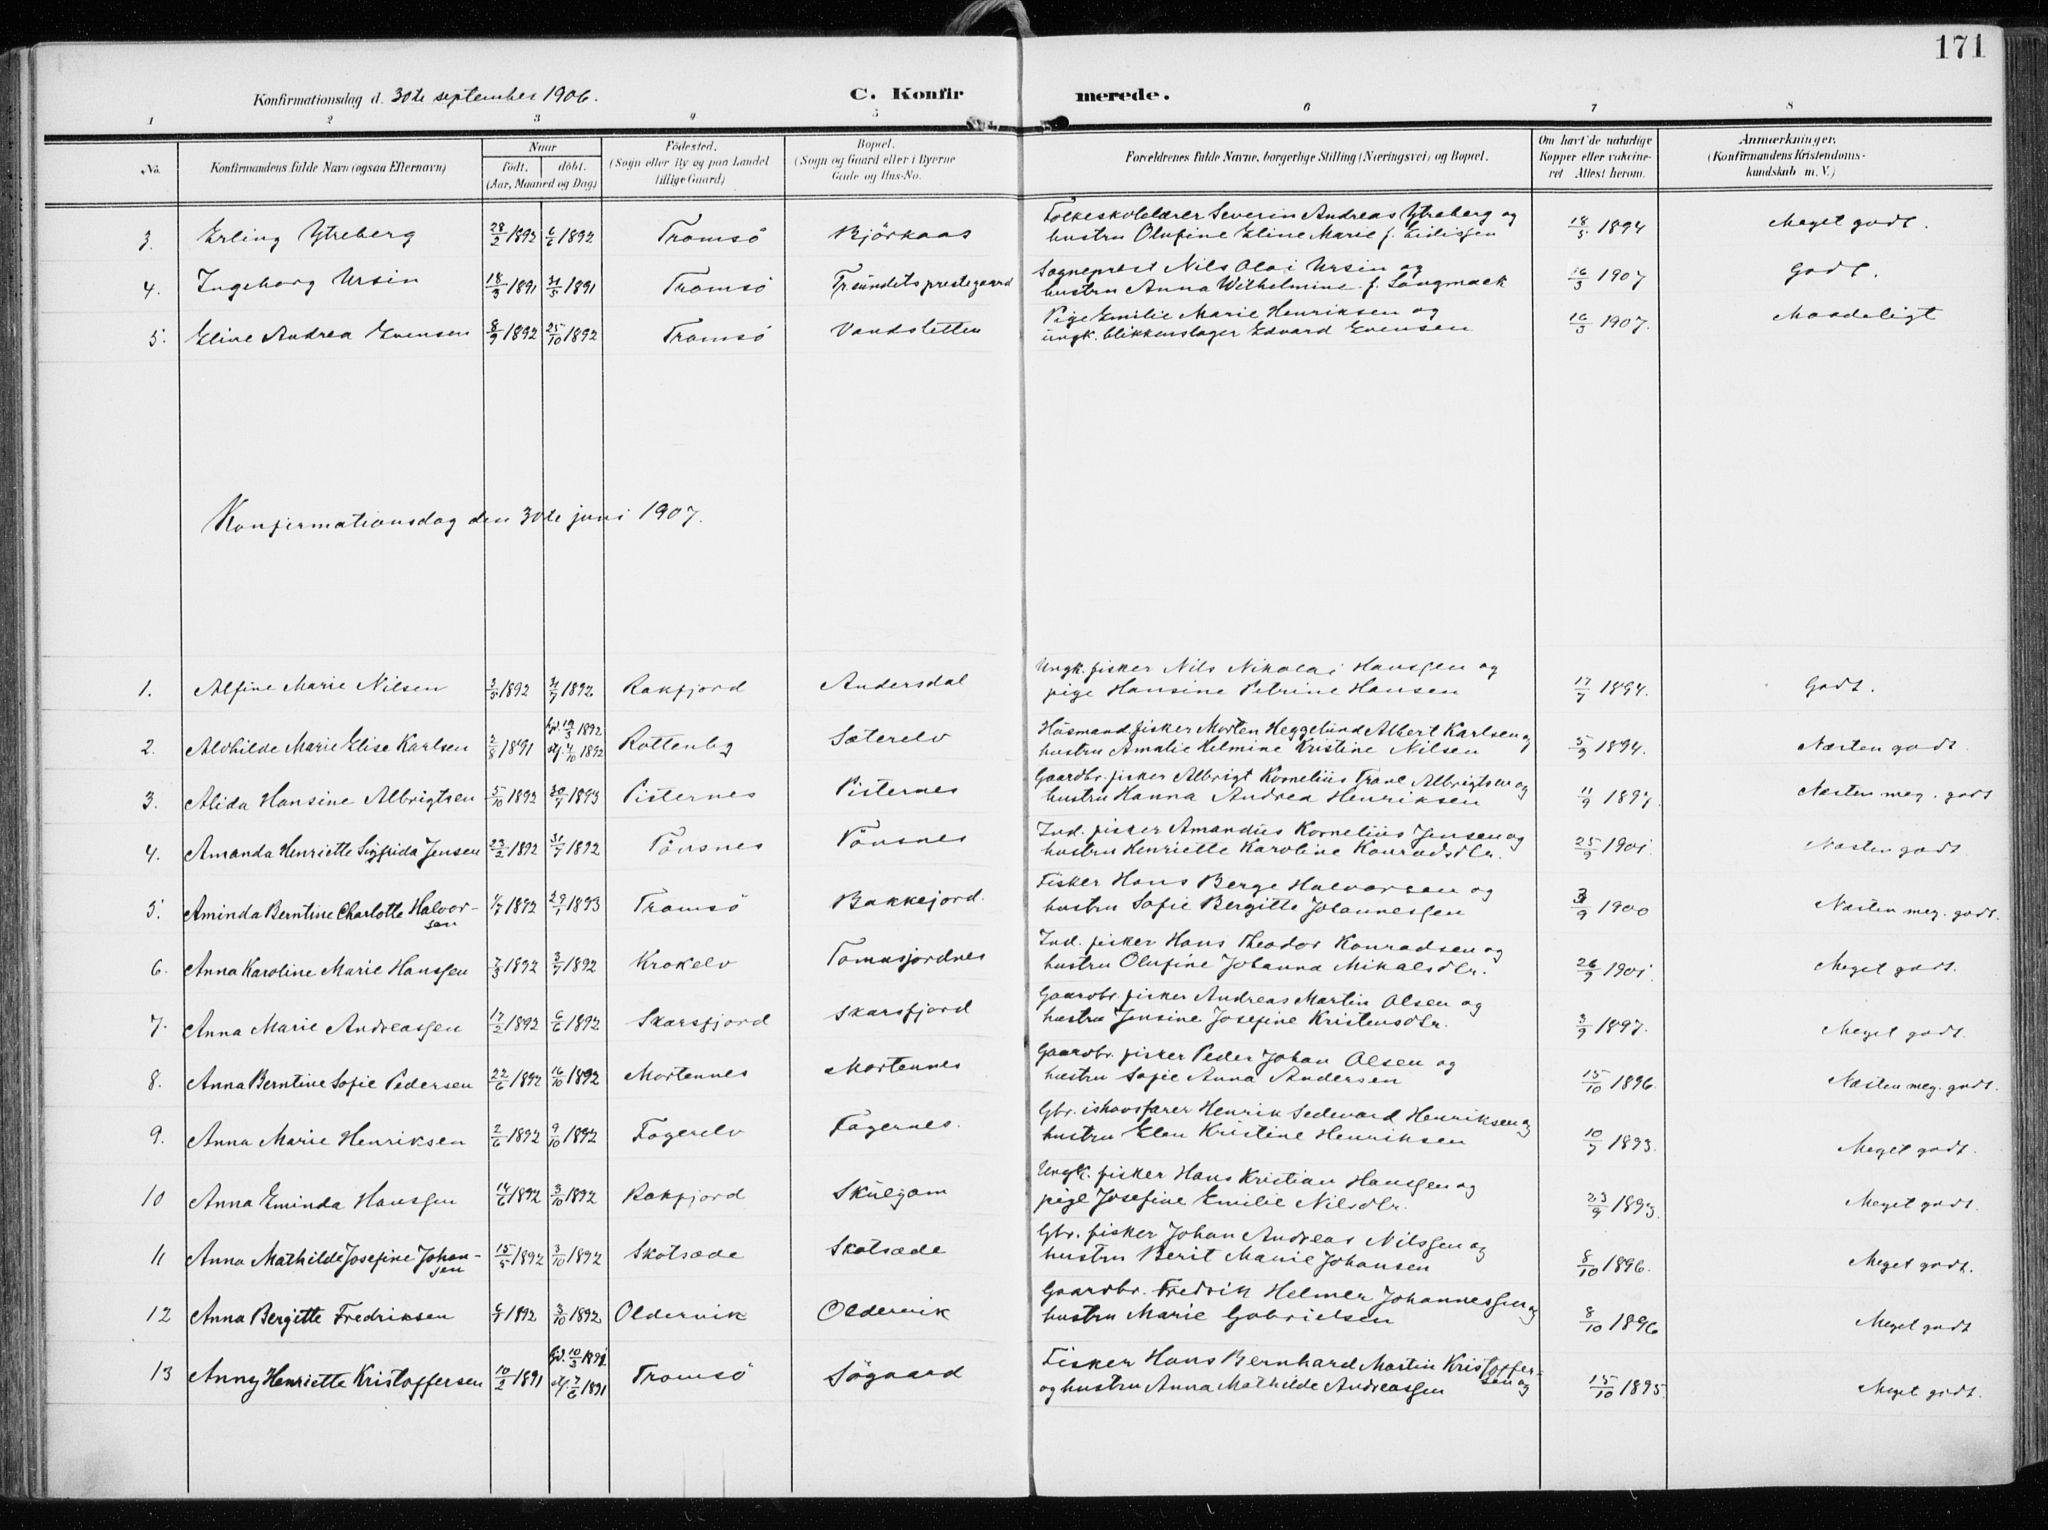 171
Konfirmationsdag d. 30te september 1906.
C. Konfirmerede.
1 2 3 4 5 6 7 8
No. Konfirmandens fulde Navn (ogsaa Efternavn) Naar født. døbt. (Aar, Maaned og Dag) Fødested. (Sogn eller By og paa Landet tillige Gaard) Bopæl. (Sogn og Gaard eller i Byerne Gade og Hus-No. Forældrenes fulde Navne, borgerlige Stilling (Næringsvei) og Bopæl. Om havt de naturlige Kopper eller vakcineret Attest herom. Anmærkninger. (Konfirmandens Kristendomskundskab m. V.)
3. Erling Ytreberg 28/2 1892 6/6 1892 Tromsö Björkaas Folkeskolelærer Severin Andreas Ytreberg og 18/5 1894 Meget godt.
hustru Olufine Eline Marie f. Eidissen
4. Ingeborg Ursin 18/3 1891 31/5 1891 Tromsö Tr.sundets prestegaard Sogneprest Nils Olai Ursin og 16/3 1907 Godt.
hustru Anna Wilhelmine f. Langmack
5. Eline Andrea Evensen 8/9 1892 25/10 1892 Tromsö Vandsletten Pige Emilie Marie Henriksen og 16/3 1907. Maadeligt
ungk. blikkenslager Edvard Evensen
Konfirmationsdag den 30te juni 1907.
1. Alfine Marie Nilsen 3/5 1892 31/7 1892 Rakfjord Andersdal Ungk. fisker Nils Nikolai Hanssen og 17/7 1894. Godt.
pige Hansine Petrine Hansen
2. Alvhilde Marie Elise Karlsen 2/8 1891 hjd. 19/3 1892 stf. 4/10 1892 Rottenby Sæterelv Husmand, fisker Morten Heggelund Albert Karlsen og 5/9 1894. Næsten godt.
hustru Amalie Helmine Kristine Nilsen
3. Alida Hansine Albrigtsen 5/10 1892 30/7 1893 Pisternes Pisternes Gaardbr. fisker Albrigt Kornelius Trane Albrigtsen og 11/9 1897. Næsten meg. godt
hustru Hanna Andrea Henriksen
4. Amanda Henriette Sigfrida Jensen 23/2 1892 31/7 1892 Tönsnes Tönsnes Ind. fisker Amandus Kornelius Jensen og 25/9 1901 Næsten godt
hustru Henriette Karoline Konradsdtr.
5. Aminda Berntine Charlotte Halvorsen 4/7 1892 29/1 1893 Tromsö Bakkejord. Fisker Hans Berge Halvorsen og 3/9 1900 Næsten meg. godt.
hustru Sofie Bergitte Johannessen
6. Anna Karoline Marie Hanssen 7/3 1892 3/7 1892 Krokelv Tomasjordnes Ind. fisker Hans Theodor Konradsen og 26/9 1901 Meget godt.
hustru Olufine Johanna Mikalsdtr.
7. Anna Marie Andreassen 17/2 1892 6/6 1892 Skarsfjord Skarsfjord Gaardbr. fisker Andreas Martin Olsen og 3/9 1897. Meget godt.
hustru Jensine Josefine Kristensdtr.
8. Anna Berntine Sofie Pedersen 22/6 1892 16/10 1892 Mortennes Mortennes Gaardbr. fisker Peder Johan Olsen og 15/10 1896. Næsten meg. godt.
hustru Sofie Anna Andersen
9. Anna Marie Henriksen 2/6 1892 9/10 1892 Fagerelv Fagernes. Gbr. ishavsfarer Henrik Sedevard Henriksen og 10/7 1893. Meget godt.
hustru Elen Kristine Henriksen
10 Anna Eminda Hanssen 14/6 1892 3/10 1892 Rakfjord Skulgam Ungk. fisker Hans Kristian Hanssen og 23/9 1893. Meget godt.
pige Josefine Emilie Nilsdtr.
11 Anna Mathilde Josefine Johansen 15/5 1892 3/10 1892 Skotsæde Skotsæde Gbr. fisker Johan Andreas Nilssen og 8/10 1896. Meget godt.
hustru Berit Marie Johansen
12 Anna Bergitte Fredriksen 6/7 1892 3/10 1892 Oldervik Oldervik Gaardbr. Fredrik Helmer Johannessen og 8/10 1896 Meget godt
hustru Marie Gabrielsen
13 Anny Henriette Kristoffersen 10/2 1891 hjd. 10/3 1891 stf. 7/6 1891 Tromsö Sögaard Fisker Hans Bernhard Martin Kristoffersen og 15/10 1895. Meget godt.
og hustru Anna Mathilde Andreassen